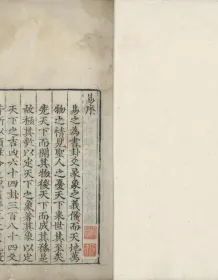 易序
易之為書卦爻彖象之義備而天地萬
物之情見聖人之憂天下來世其至矣
先天下而開其物後天下而成其務是
故極其數以定天下之象著其象以定
天下之吉凶六十四卦三百八十四爻